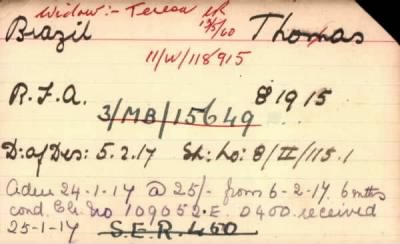 Widow:- Teresa
Brazil Thomas
11/W/118915
R.F.A. 81915
3/MB/15649
D: of Dis: 5.2.17 Sh: Lo: 8/II/115.1
24-1-17 @ 25/- from 6-2-17. 6 mths
cond. No 109052.E. 0400 received
25-1-17 S.E.R. 460